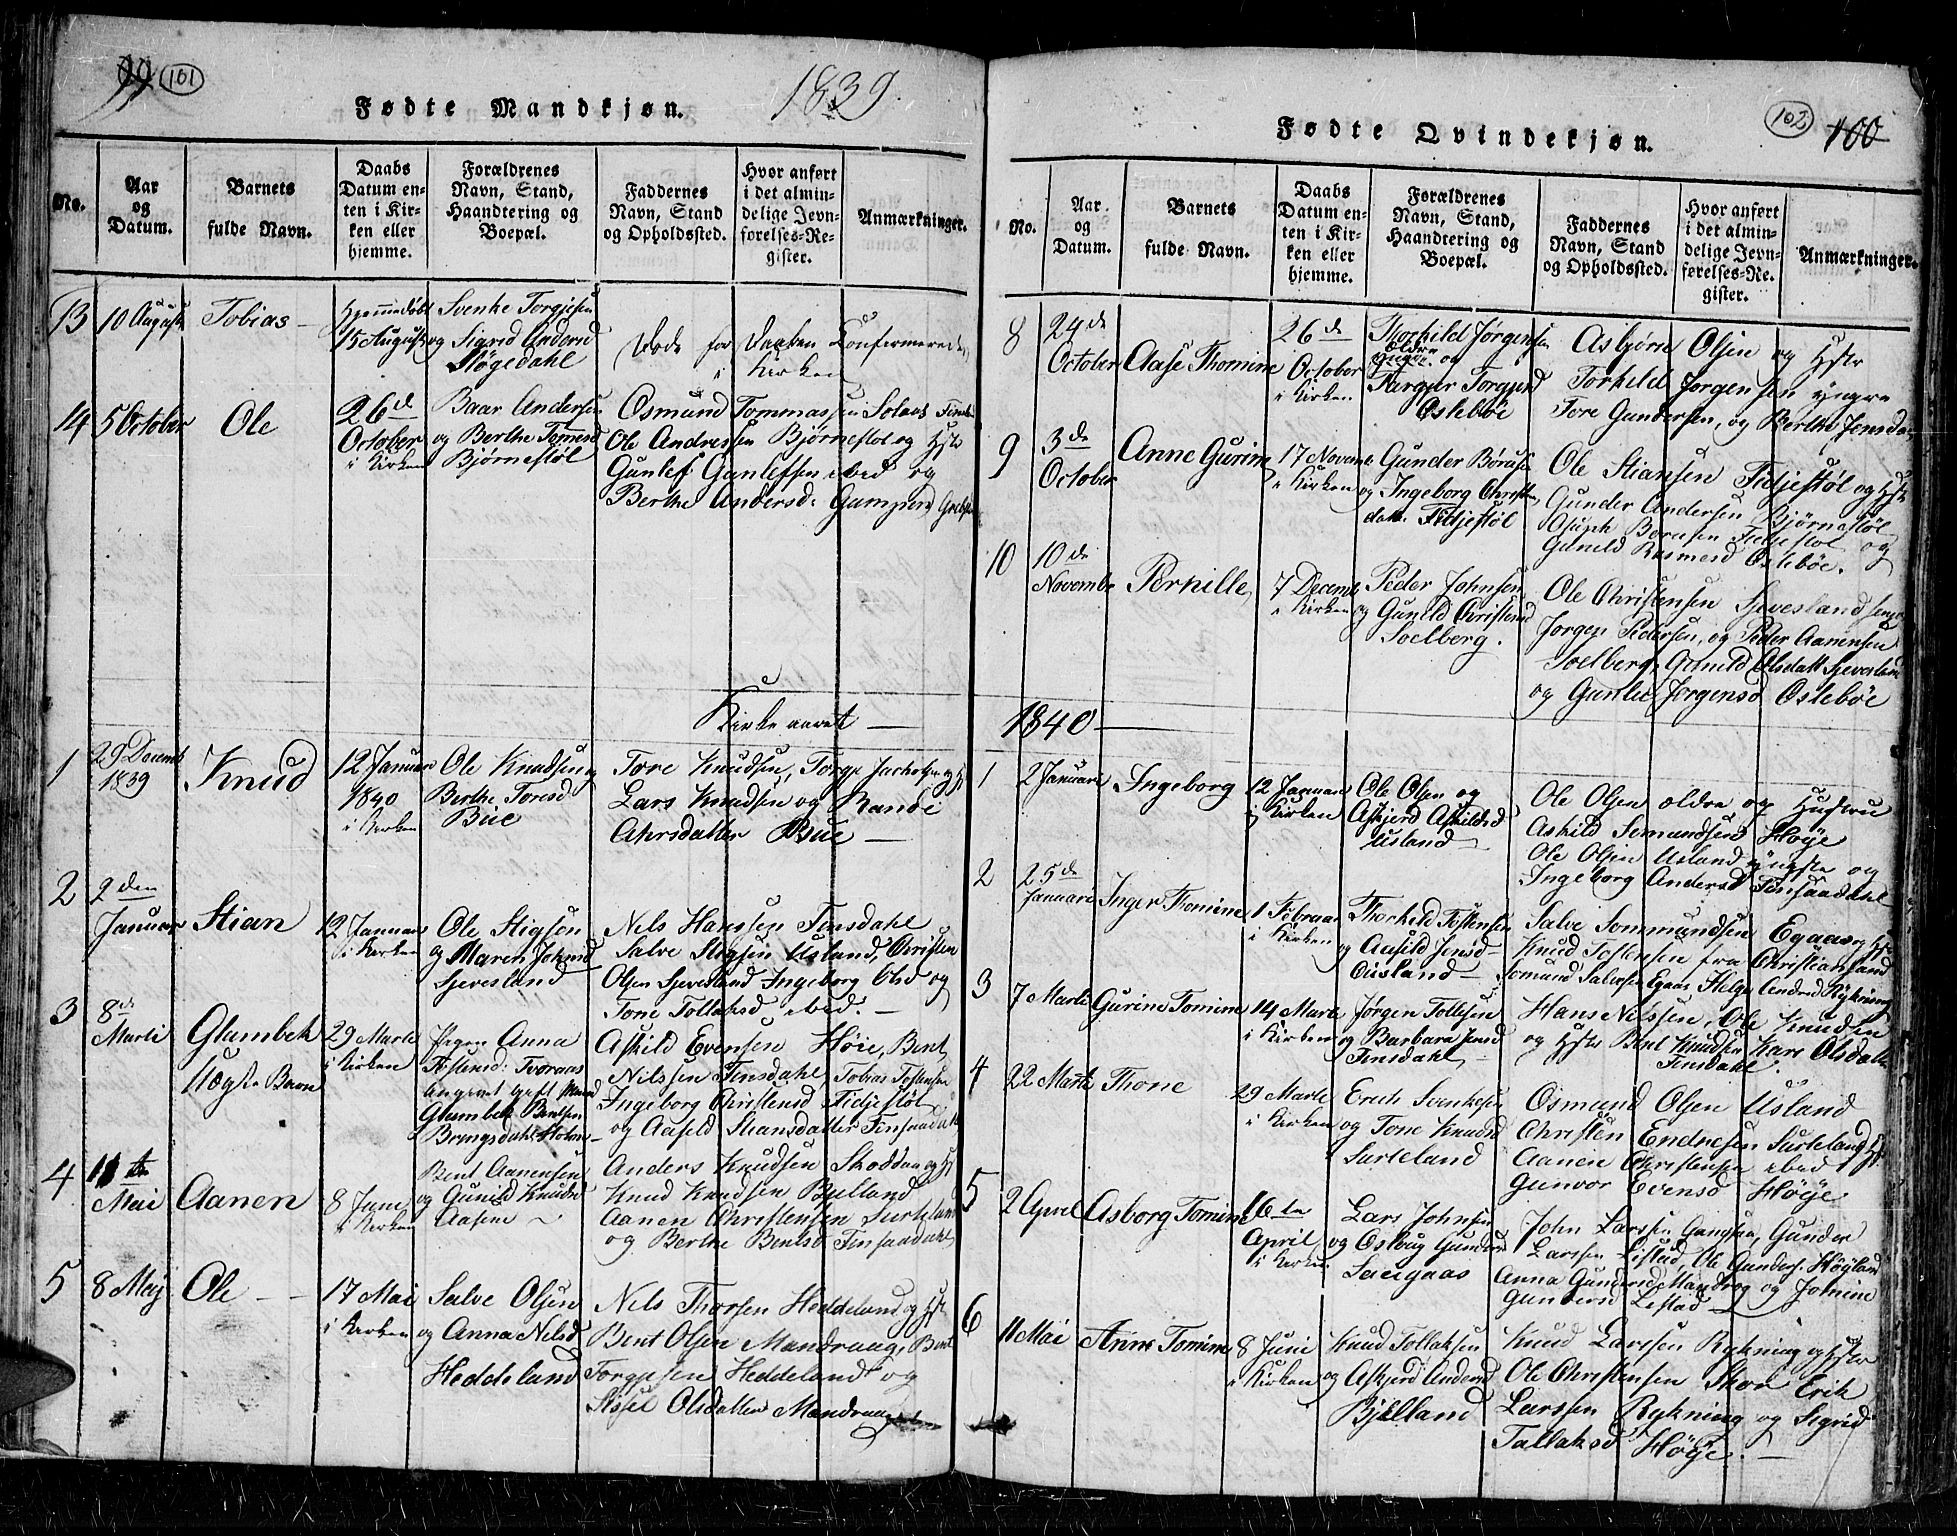 99 101
Fødte Mandkjøn.
1839.
No.
Aar
og
Datum.
Barnets
fulde Navn.
Daabs
Datum en-
ten i Kir-
ken eller
hjemme.
Forældrenes
Navn, Stand,
Haandtering og
Boepæl.
Faddernes
Navn, Stand
og Opholdssted.
Hvor anført
i det almin-
delige Jevn-
førelses-Re-
gister.
Anmærkninger.
13 10 August Tobias
Hjemmedøbt
15 August
Svenke Torgjesen
og Sigrid Anders
Høgedahl
Døde for Daaben Confermerede
i Kirken
14 5 October Ole
26de
October
i Kirken
Baar Andersen
og Berthe Tomesd
Bjørnestøl
Osmund Tommassen
Ole Andressen Bjørnestøl og Hstr
Gunlef Gunlefsen ibid og
Berthe Andersd:
Kirkeaaret
1 29 Decemb
1839
Knud
12 Januar
1840
i Kirken
Ole Knudsen og
Berthe Toresd
Bue
Tore Knudsen, Torge
Lars Knudsen og Randi
Bue
2 2den
Januar
Stian
12 Januar
i Kirken
Ole Stigsen
og Maren Johnsd
Sjevesland
Nils Hanssen Finsdahl
Salve Stigsen Usland, Christen
Olsen Sjevesland Ingeborg Olsd og
Tone Tollaksd ibid.
3 8de
Marti
Glambek
Uægte Barn
29 Marti
i Kirken
Pigen Anna
angivet gift Mand
Glambek Bentsen
Askild Evensen Høie, Bent
Nilssen Finsdahl, Tobias Tostensen
Ingeborg Christensd Fidjestøl
og Aasild Stiansdatter Finsaadahl
4 11te
Mai
Aanen
8 Juni
i Kirken
Bent Aanensen
og Gunild Knudsd
Aasen
Anders Knudsen Skoddan og Hst
Knud Knudsen Bjelland
Aanen Christensen Surteland
og Berthe Bentsd Finsaadahl
5 8 Maj Ole
17 Mai
i Kirken
Salve Olsen
og Anna Nilsd
Heddeland
Nels Thorsen Heddeland og Hst
Bent Olsen Mandraag, Bent
Torgjesen Heddeland og
Sissel Olsdatter Mandraag
102 100
Fødte Qvindekjøn.
No.
Aar
og
Datum.
Barnets
fulde Navn.
Daabs
Datum en-
ten i Kir-
ken eller
hjemme.
Forældrenes
Navn, Stand,
Haandtering og
Boepæl.
Faddernes
Navn, Stand
og Opholdssted.
Hvor anført
i det almin-
delige Jevn-
førelses-Re-
gister.
Anmærkninger.
8 24de
October
Aase Thomine
26de
October
i Kirken
Thorkild Jørgensen
ældre
og
Oslebøe
Asbjørn Olsen og Hstr
Torkild Jørgensen yngre
Tore Gundersen, og Berthe Jensda
9 3de
October
Anne Gurine
17 Novemb
i Kirken
Gunder Børusen
og Ingeborg Christen
datt. Fidjestøl
Ole Stiansen Fidjestøl og Hstr
Gunder Andersen Bjørnestøl
Børusen Fidjestøl og
Gunild Rasmusd Oslebøe.
10 10de
Novembr
Pernille
7 Decemb
i Kirken
Peder Johnsen
og Gunild Christensd
Soelberg.
Ole Christensen Sjevesland
Jørgen Pedersen, og Peder Aanensen
Soelberg, Gunild Olsdatt Sjevesland
og Gunlei Jørgensd Oslebøe
1840
1 2 Januari Ingeborg
12 Januar
i Kirken
Ole Olsen og
Askjerd Askildsd
Usland
Ole Olsen ældre og Hustru
Askild Semundsen Høije
Ole Olsen Usland yngste og
Ingeborg Andersd Finsaadahl
2 25de
Januari
Inger Thomine
1 Februar
i Kirken
Thorkild Tostensen
og Aasild Jensd
Ousland
Salve Sommundsen Egaas og Hst
Knud Tostensen fra Christiansand
Somund Salvesen Egaas Helge Rykning
3 7 Marti Gurine Tomine
14 Marti
i Kirken
Jørgen Tollefsen
og Barbara Jensd
Finsdahl
Hans Nilssen, Ole Knudsen
og Hstr Bent Knudsen Kari Olsdatt
Finsdahl.
4 22 Marti Thone
29 Marti
i Kirken
Erich Svenkesen
og Tone Knudsd
Surteland
Osmund Olsen Usland
Christen Endresen Surteland Hst
Aanen Christensen ibid
Gunvor Evensd Høije
5 2 April Asborg Tomine
16te
April
i Kirken
Lars Johnsen
og Oslaug Gundersd
John Larssen, Gunder
Larssen Lestad, Ole Gunders. Høyland
Anna Gundersd Mandrag og Jomine
Gundersd Lestad
6 11 Mai Anne Tomine
8 Juni
i Kirken
Knud Tollaksen
og Askjerd Andersd
Bjelland
Knud Larssen Rykning og Hstr
Ole Christensen Skor Erik
Larssen Rykning og Sigrid
Tallaksd Høije.